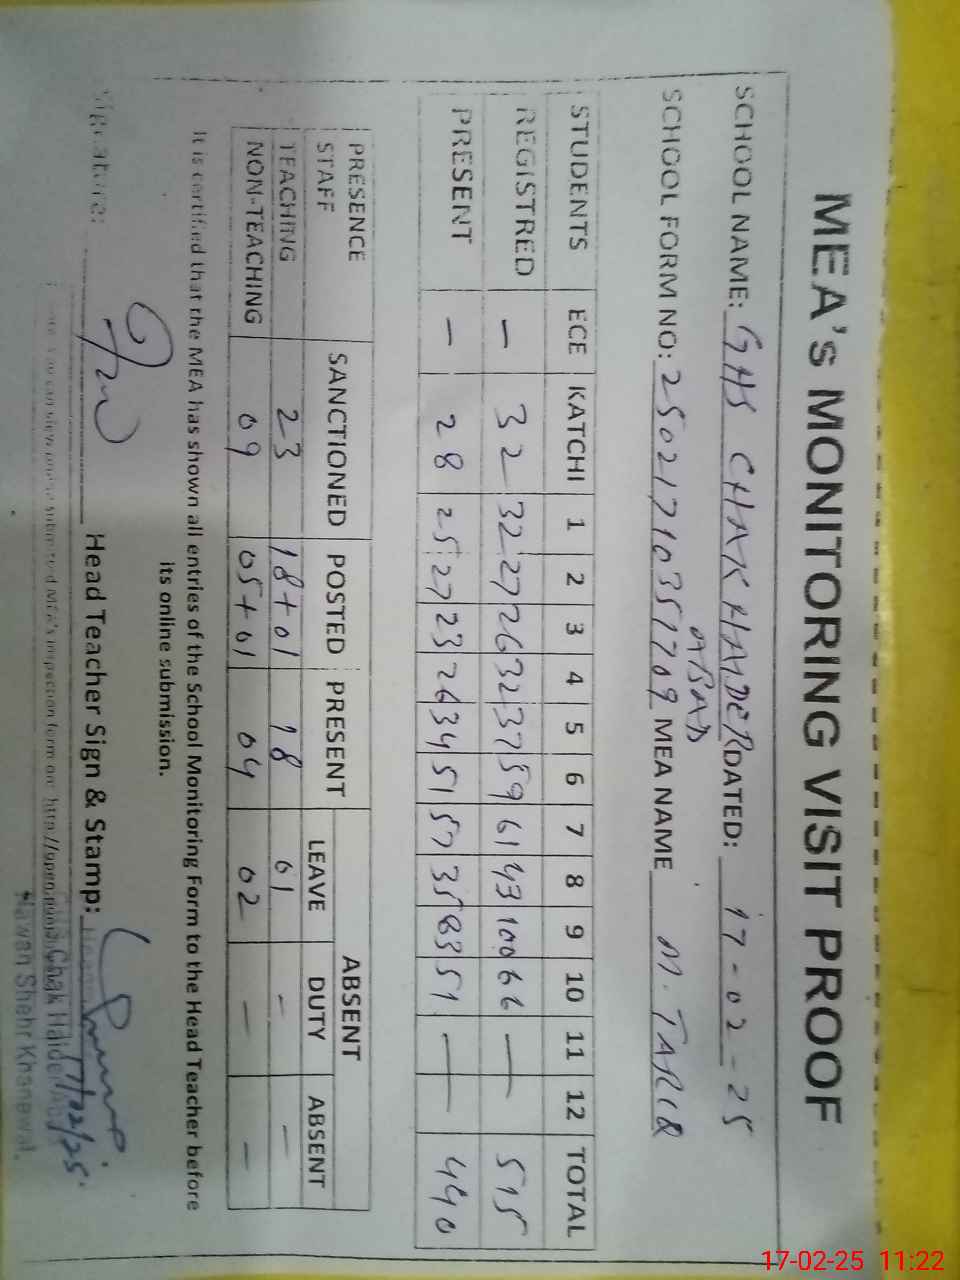 MEA's MONITORING VISIT PROOF
SCHOOL NAME: GHS CHAK HAIDER DATED: 17-02-25
ABAD
SCHOOL FORM NO: 25021710351709 MEA NAME M. TARIQ
STUDENTS ECE KATCHI 1 2 3 4 5 6 7 8 9 10 11 12 TOTAL
REGISTRED — 32 32 27 26 32 37 59 61 43 100 66 — — 515
PRESENT — 28 25 27 23 26 34 51 57 35 83 51 — — 440
PRESENCE STAFF SANCTIONED POSTED PRESENT ABSENT
LEAVE DUTY ABSENT
TEACHING 23 18+01 18 01 - -
NON-TEACHING 09 05+01 04 02 - -
It is certified that the MEA has shown all entries of the School Monitoring Form to the Head Teacher before
its online submission.
Signature: Head Teacher Sign & Stamp:
17/02/25
you can view online submitted MEA's inspection form on: http://open.
Chak Haider
Nawan Shehr Khanewal.
17-02-25 11:22